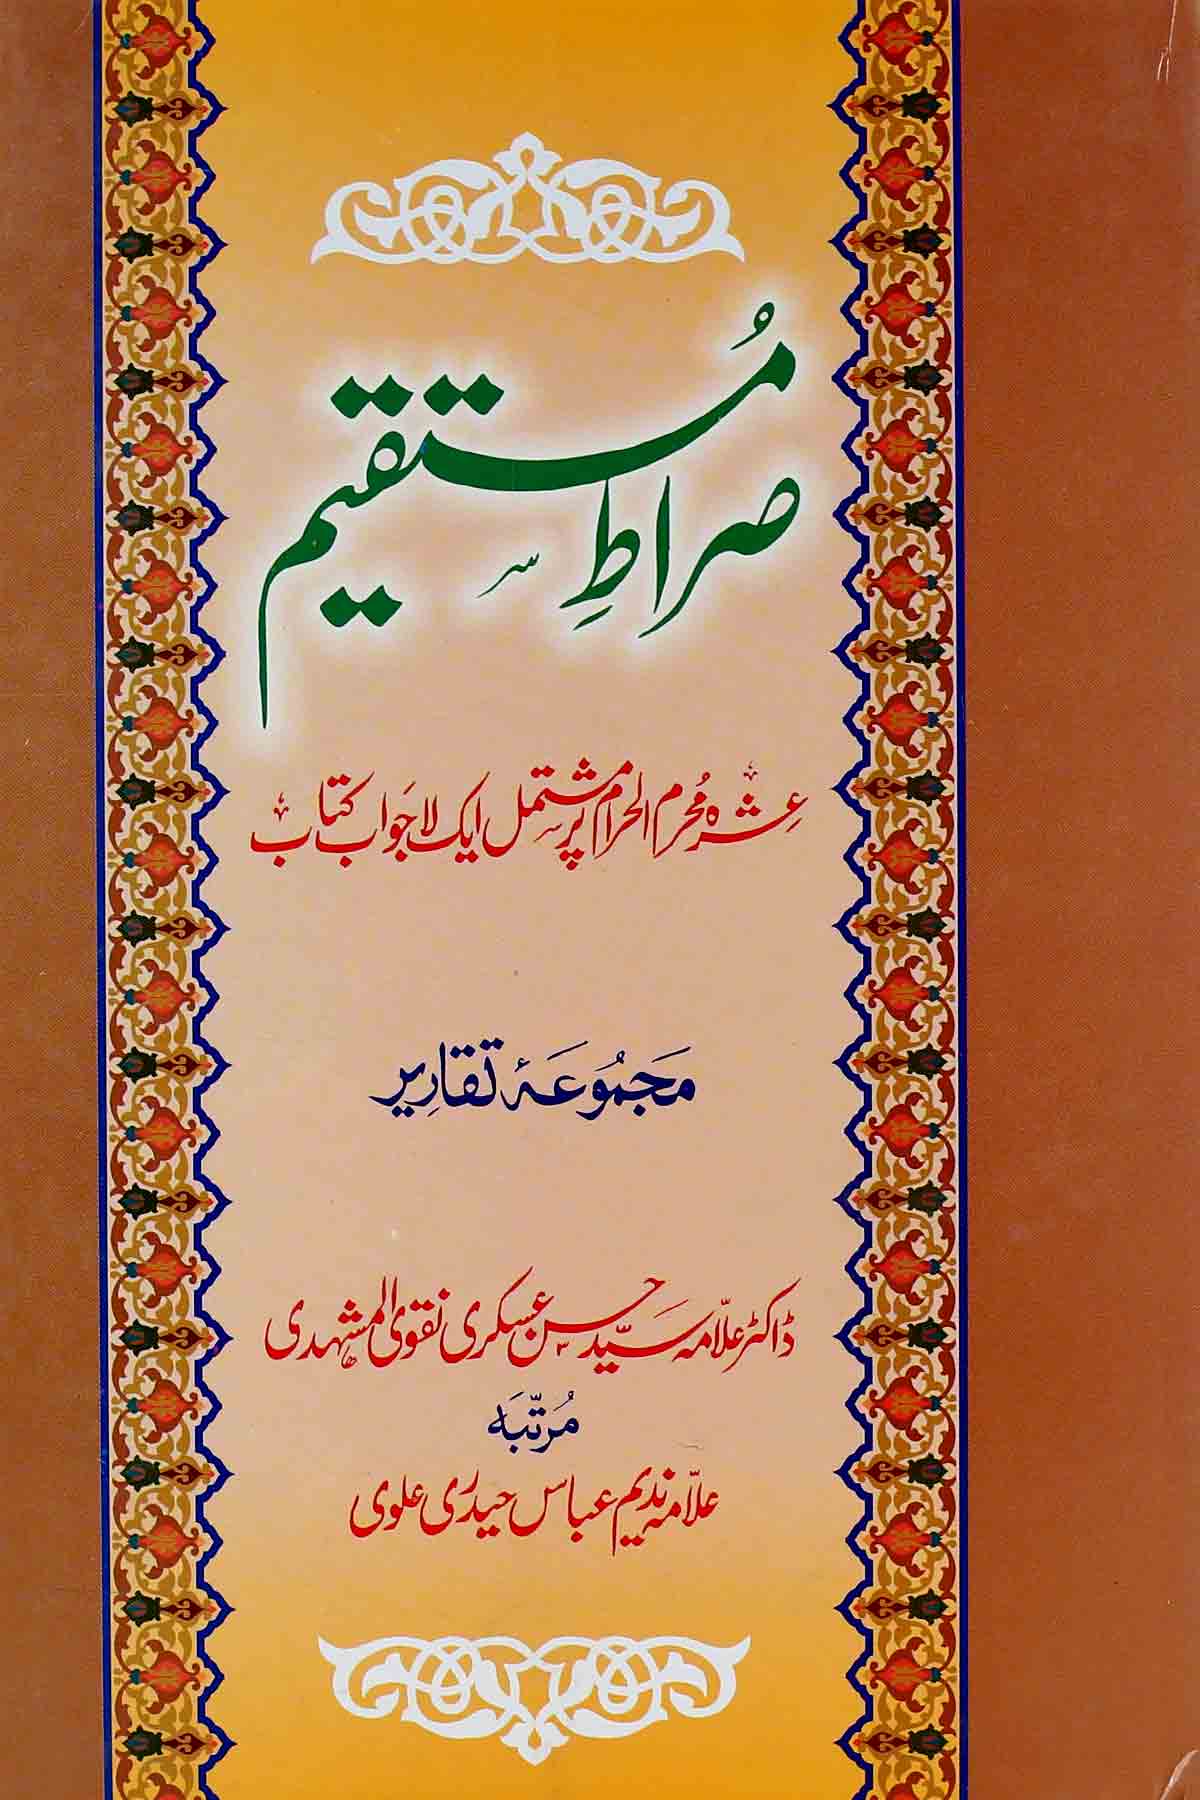 صراطِ مُستقیم
عشرہ محرم الحرام پر مشتمل ایک لاجواب کتاب
مَجمُوعَۂ تقارِیر
ڈاکٹر علّامہ سیّد حسن عسکری نقوی المشہدی
مُرتّبَہ
علّامہ ندیم عباس حیدری علوی